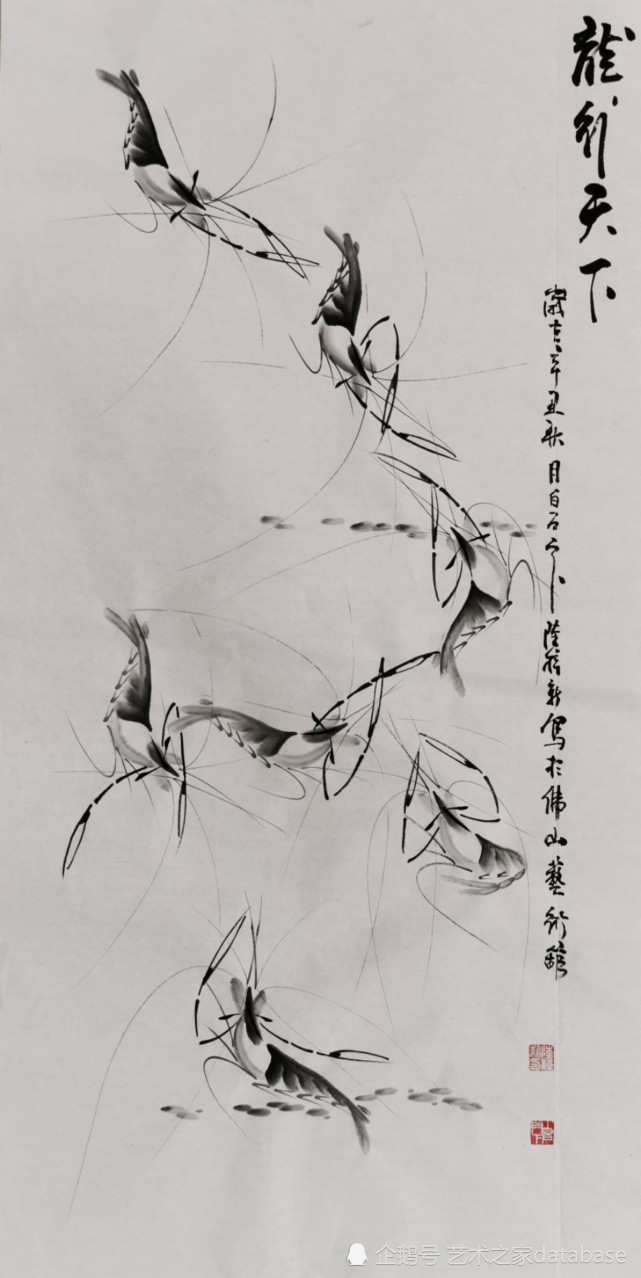 龍行天下
歲在辛丑秋月白石门下陸新寫於佛山藝術館
企鹅号 艺术之家database